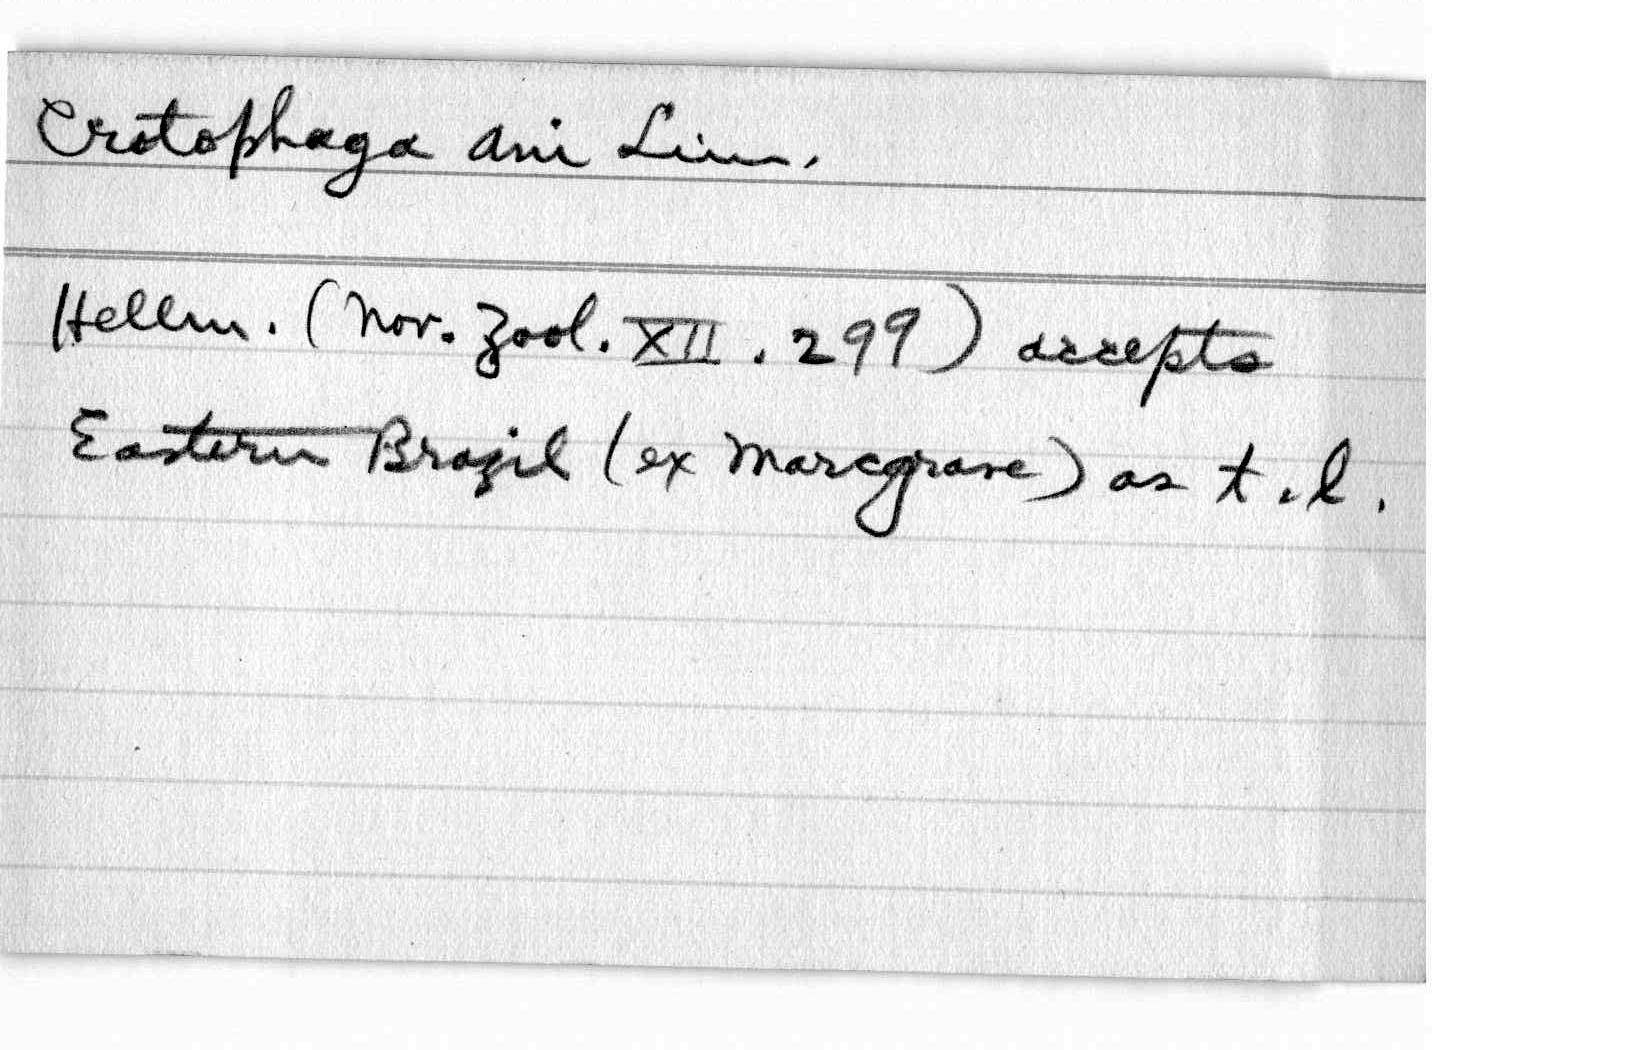 Crotophaga ani Linn.
Hellm. (Nov. Zool. XII. 299) accepts
Eastern Brazil (ex Marcgrave) as t.l.